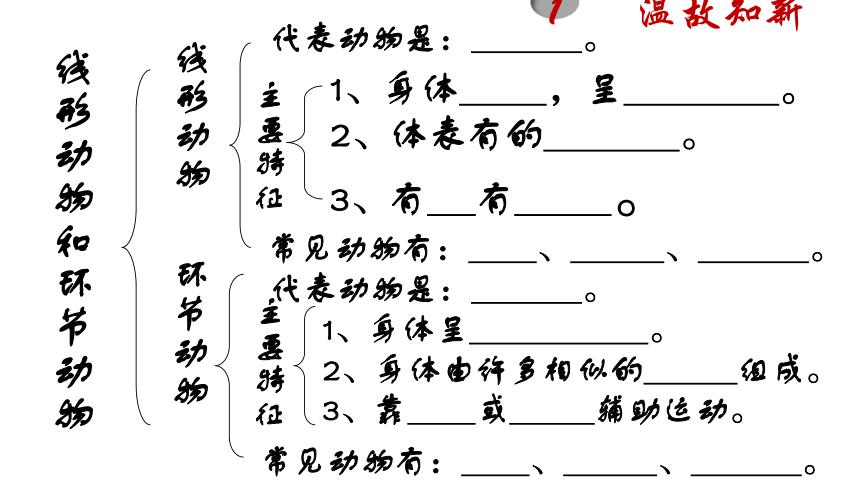 1 温故知新
线形动物和环节动物
线形动物
代表动物是：________。
主要特征
1、身体______，呈___________。
2、体表有的__________。
3、有___有_______。
常见动物有：_____、_______、________。
环节动物
代表动物是：________。
主要特征
1、身体呈_____________。
2、身体由许多相似的_______组成。
3、靠_____或______辅助运动。
常见动物有：_____、_______、________。